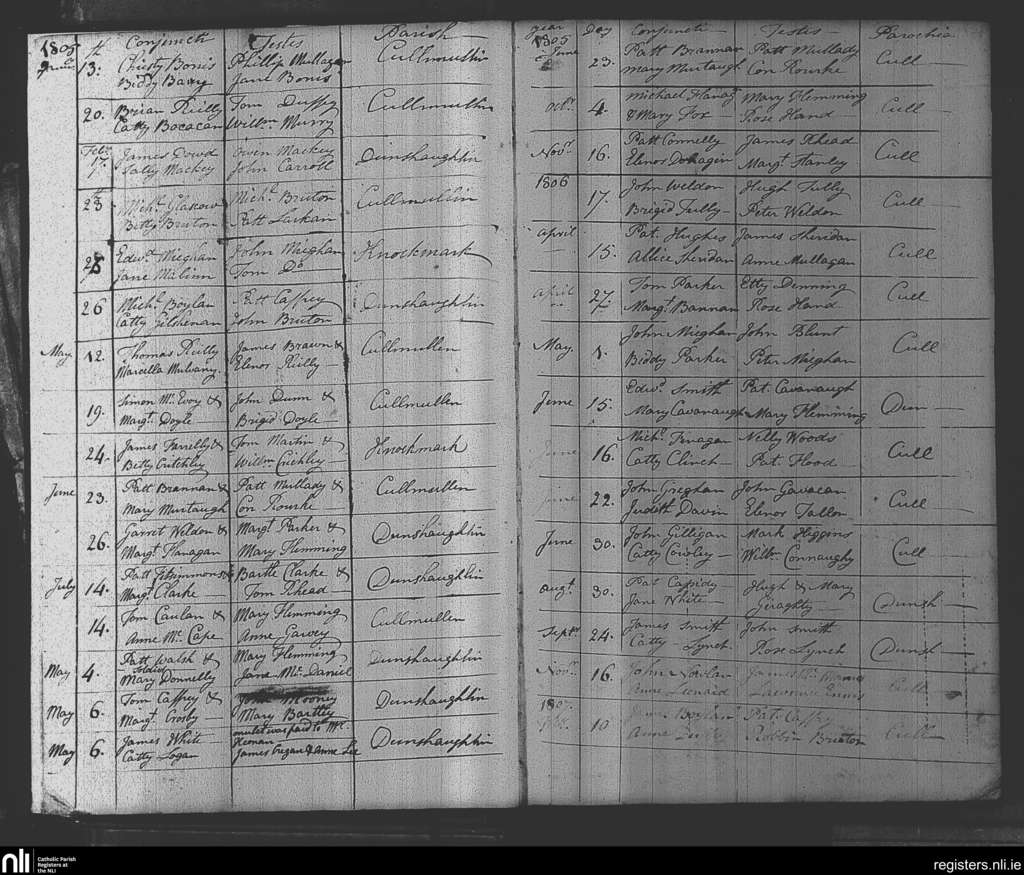 1805 Conjuncti Testis Parish
13. Christy Bonis Phillip Mullagan Cullmullin
Biddy Barry Jane Bonis
20. Brian Reilly Tom Duffey Cullmullin
Catty Bocacan Willm Murry
Feby 17. James Dowd Owen Mackey Dunshaughlin
Sally Mackey John Carroll
23 Michl Glascow Michl Bruton Cullmullin
Betty Bruton Patt Larkan
25 Edwd Mieghan John Mieghan Knockmark
Jane Malinn Tom Do
26 Michl Boylan Patt Caffrey Dunshaughlin
Catty Gilshenan John Bruton
May 12. Thomas Reilly James Brawn & Cullmullen
Marcella Mulvany. Elenor Reilly
19. Simon Mc Evoy & John Dunn & Cullmullen
Margt Doyle Brigid Doyle
24. James Farrelly & Tom Martin & Knockmark
Betty Critchley Willm Crichley
June 23. Patt Brannan & Patt Mullady & Cullmullen
Mary Murtaugh Con Rourke
26. Garret Weldon & Margt Parker & Dunshaughlin
Margt Flanagan Mary Flemming
July 14. Patt Fitsimmons & Bartle Clarke & Dunshaughlin
Margt Clarke Tom Rhead
14. Tom Caulan & Mary Flemming Cullmullen
Anne Mc Cape Anne Garvey
May 4. Patt Walsh & Mary Flemming Dunshaughlin
Soldier
Mary Donnelly Jane Mc Daniel
May 6. Tom Caffrey & John Mooney Dunshaughlin
Margt Crosby Mary Bartley
mulct was paid to Mr
May 6. James White Dunshaughlin
Catty Logan James Cregan & Anne Lee
year 1805 Day Conjuncti Testis Parochia
June 23. Patt Brannan Patt Mullady Cull
Mary Murtaugh Con Rourke
Octr 4. Michael Flanagn Mary Flemming Cull
& Mary Fox Rose Hand
Novr 16. Patt Connelly James Rhead Cull
Elenor Dohagin Margt Hanley
1806
17. John Weldon Hugh Tully Cull
Brigid Tully Peter Weldon
April 15. Pat. Hughes James Sheridan Cull
Allice Sheridan Anne Mullagan
April 27 Tom Parker Etty Denning Cull
Margt Bannan Rose Hand
May. 1. John Mieghan John Blunt Cull
Biddy Parker Peter Mieghan
June 15. Edwd Smith Pat. Cavanaugh Dun
Mary Cavanaugh Mary Flemming
June 16. Michl Finagan Nelly Woods Cull
Catty Clinch Pat. Flood
June 22. John Greghan John Gavacan Cull
Judith Davin Elenor Fallon
June 30. John Gilligan Mark Higgins Cull
Catty Cowley Willm Connaughy
Augt 30. Pat Cassidy Hugh & Mary Dunsh
Jane White Geraghty
Septr 24. James Smith John Smith Dunsh
Catty Lynch Rose Lynch
Novr 16. John Nowlan James Cull
Anne Leonard Lawrence
1807
10 James Boylan Pat. Caffry Cull
Anne Robbin Bruton
nli Catholic Parish
Registers at
the NLI
registers.nli.ie